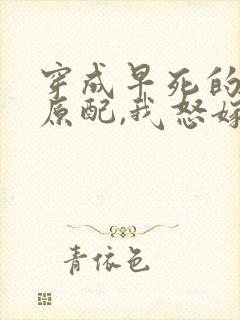 穿成早死的
原配,我怒嫁
青依色